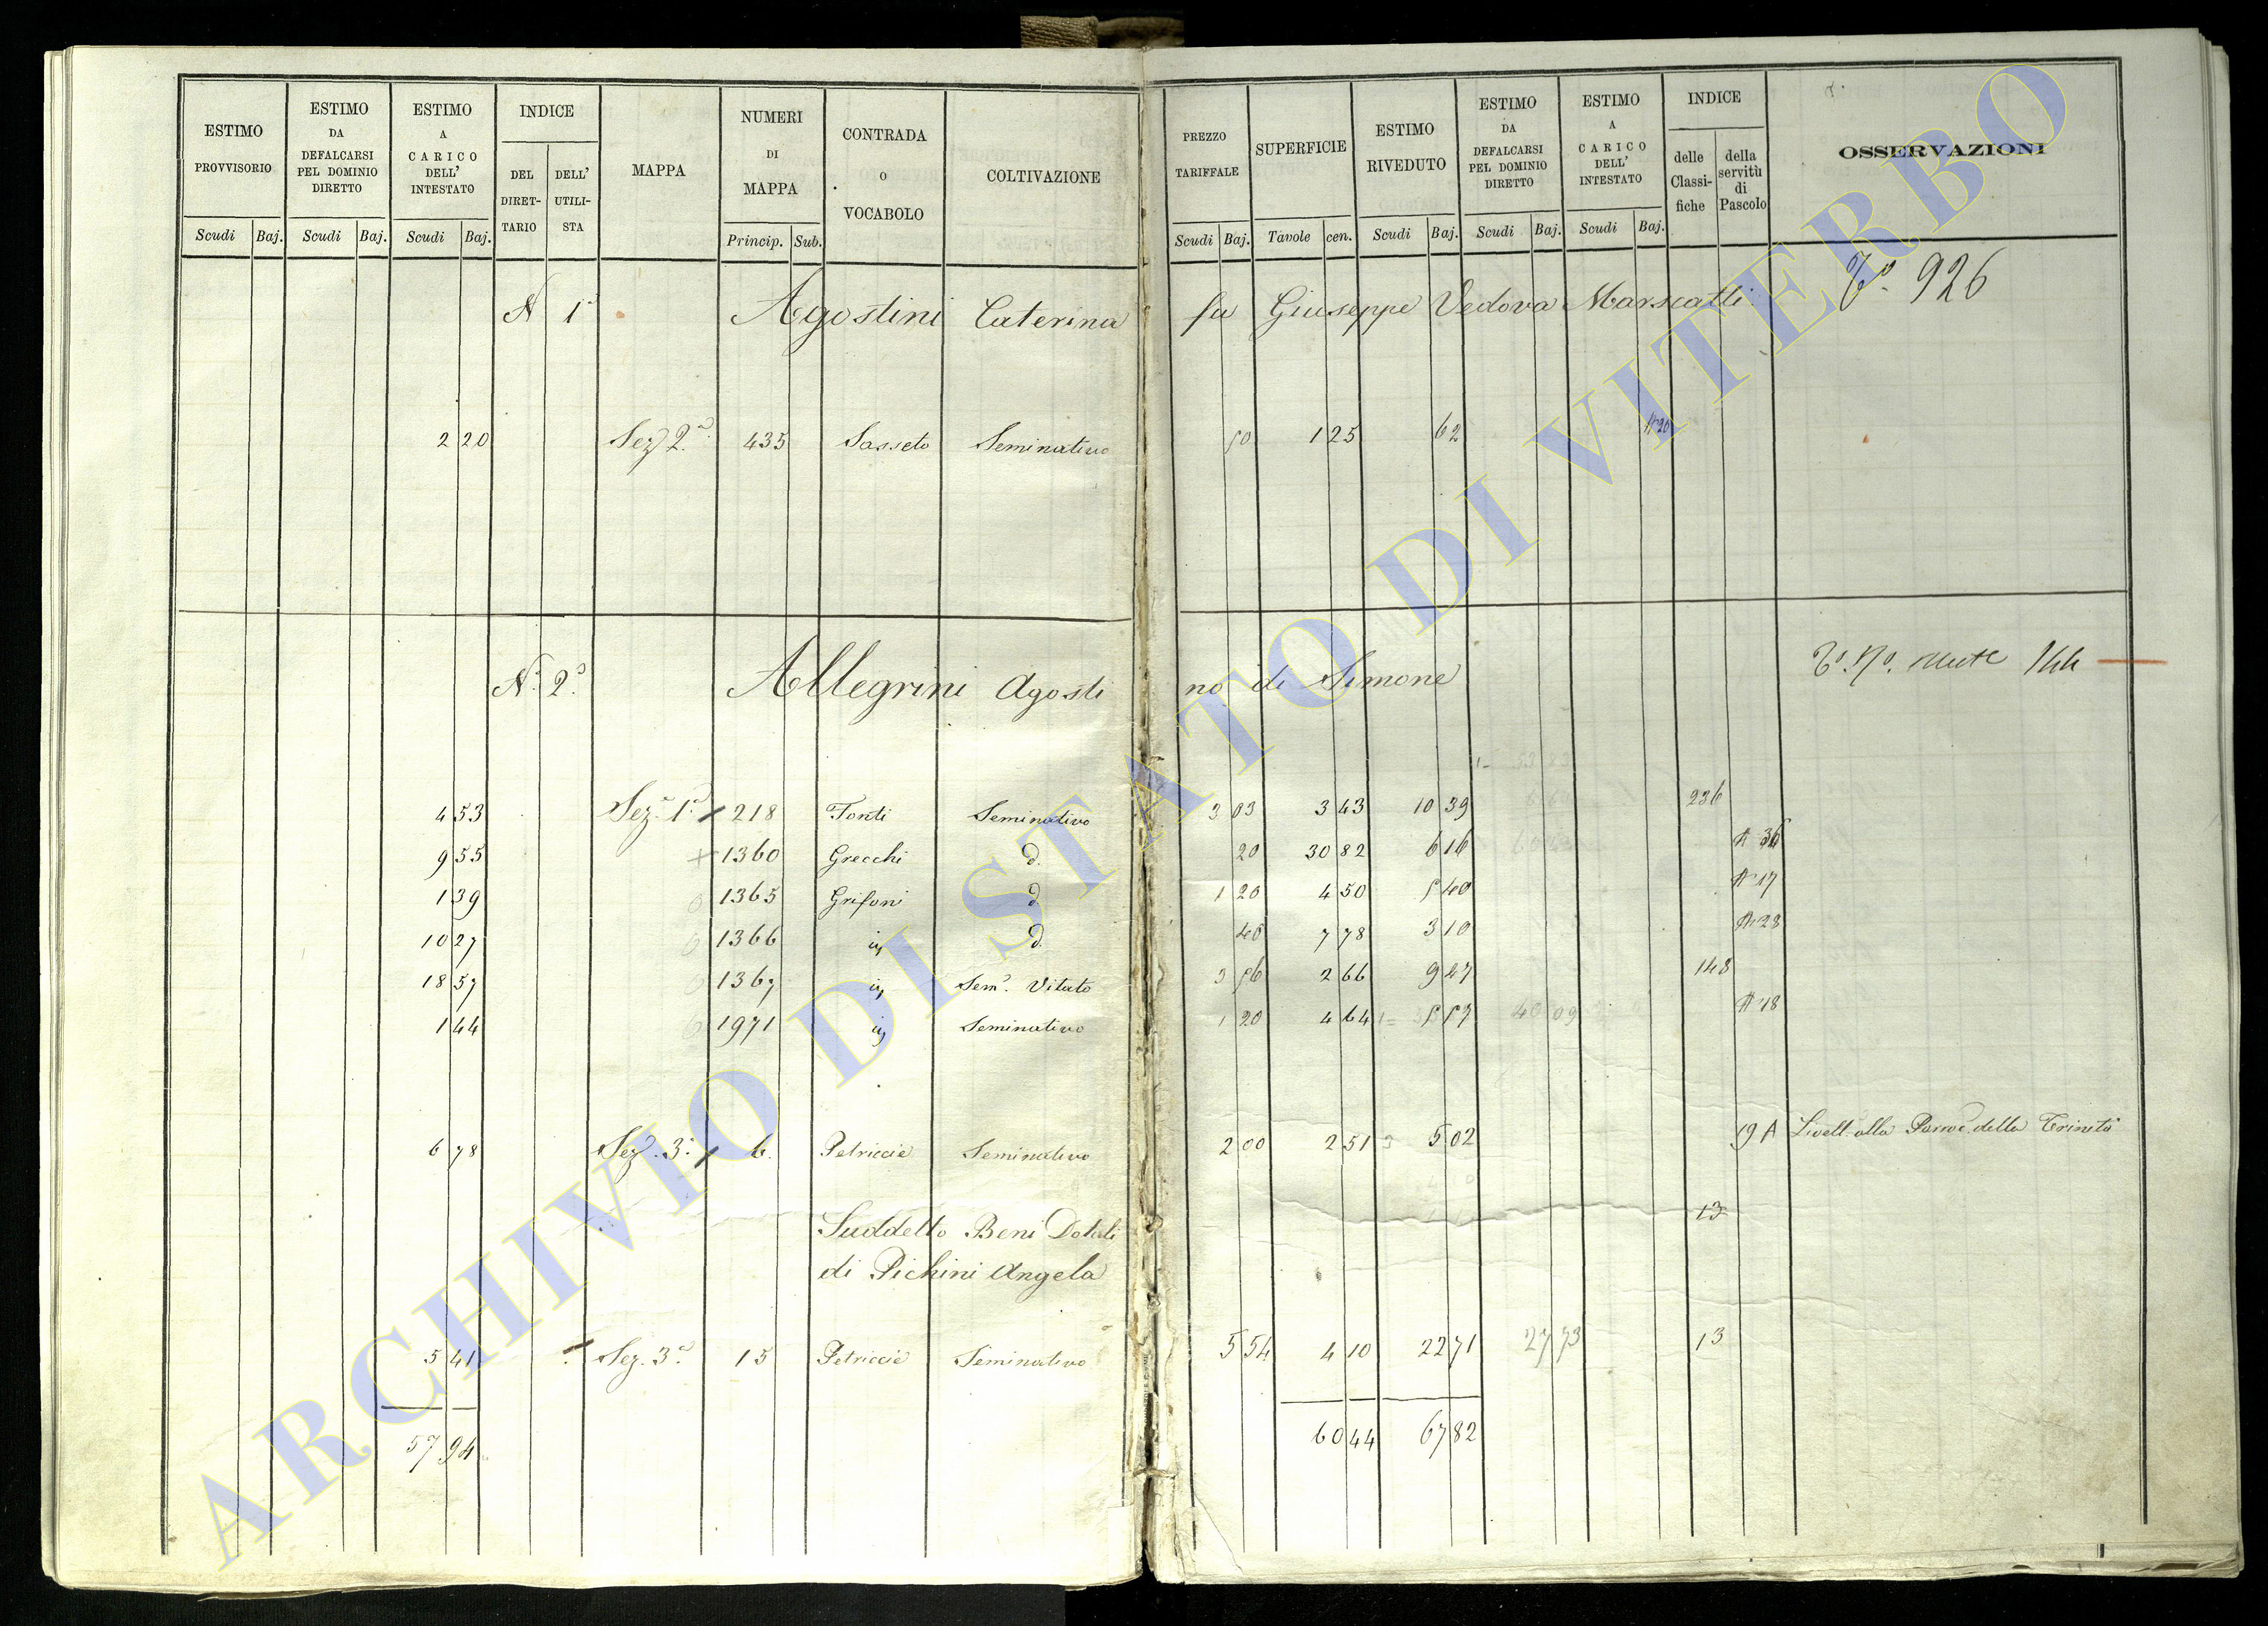 ESTIMO PROVVISORIO
ESTIMO DA DEFALCARSI PEL DOMINIO DIRETTO
ESTIMO A CARICO DELL' INTESTATO
INDICE
DEL DIRET-TARIO
DELL' UTILI-STA
MAPPA
NUMERI DI MAPPA
CONTRADA O VOCABOLO
COLTIVAZIONE
PREZZO TARIFFALE
SUPERFICIE
ESTIMO RIVEDUTO
ESTIMO DA DEFALCARSI PEL DOMINIO DIRETTO
ESTIMO A CARICO DELL' INTESTATO
INDICE
delle Classi-fiche
della servitù di Pascolo
OSSERVAZIONI
Scudi Baj. Scudi Baj. Scudi Baj. Princip. Sub. Scudi Baj. Tavole cen. Scudi Baj. Scudi Baj. Scudi Baj.
N 1º Agostini Caterina fu Giuseppe Vedova Marscatti 926
2 20 Sez 2ª 435 Sasseto Seminativo 50 1 25 62
Nº 2º Allegrini Agostino di Simone
4 53 Sezº 1ª 218 Fonti Seminativo 3 03 3 43 10 39 236
9 55 1360 Grecchi d. 20 30 82 6 16 36
1 39 1365 Grifoni d 1 20 4 50 5 40 17
10 27 1366 d. 40 7 78 3 10 28
18 57 1367 Semº. Vitato 3 56 2 66 9 47 148
1 44 1971 Seminativo 1 20 4 64 5 57 18
6 78 Sezº. 3ª 6. Petriccie Seminativo 2 00 2 51 5 02 19 A Livell. alla Parroc. della Trinità
Suddetto Beni Dotali 13
di Pichini Angela
5 41 Sez. 3ª. 15 Petriccie Seminativo 5 54 4 10 22 71 27 73 13
57 94 60 44 67 82
ARCHIVIO DI STATO DI VITERBO